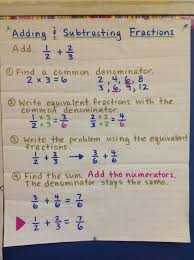 Adding & Subtracting Fractions
Add. 1/2 + 2/3
① Find a common denominator.
2 x 3 = 6
2, 4, 6, 8
3, 6, 9, 12
② Write equivalent fractions with the
common denominator.
1/2 x 3/3 = 3/6 2/3 x 2/2 = 4/6
③ Write the problem using the equivalent
fractions.
1/2 + 2/3 → 3/6 + 4/6
④ Find the sum. Add the numerators.
The denominator stays the same.
3/6 + 4/6 = 7/6
1/2 + 2/3 = 7/6